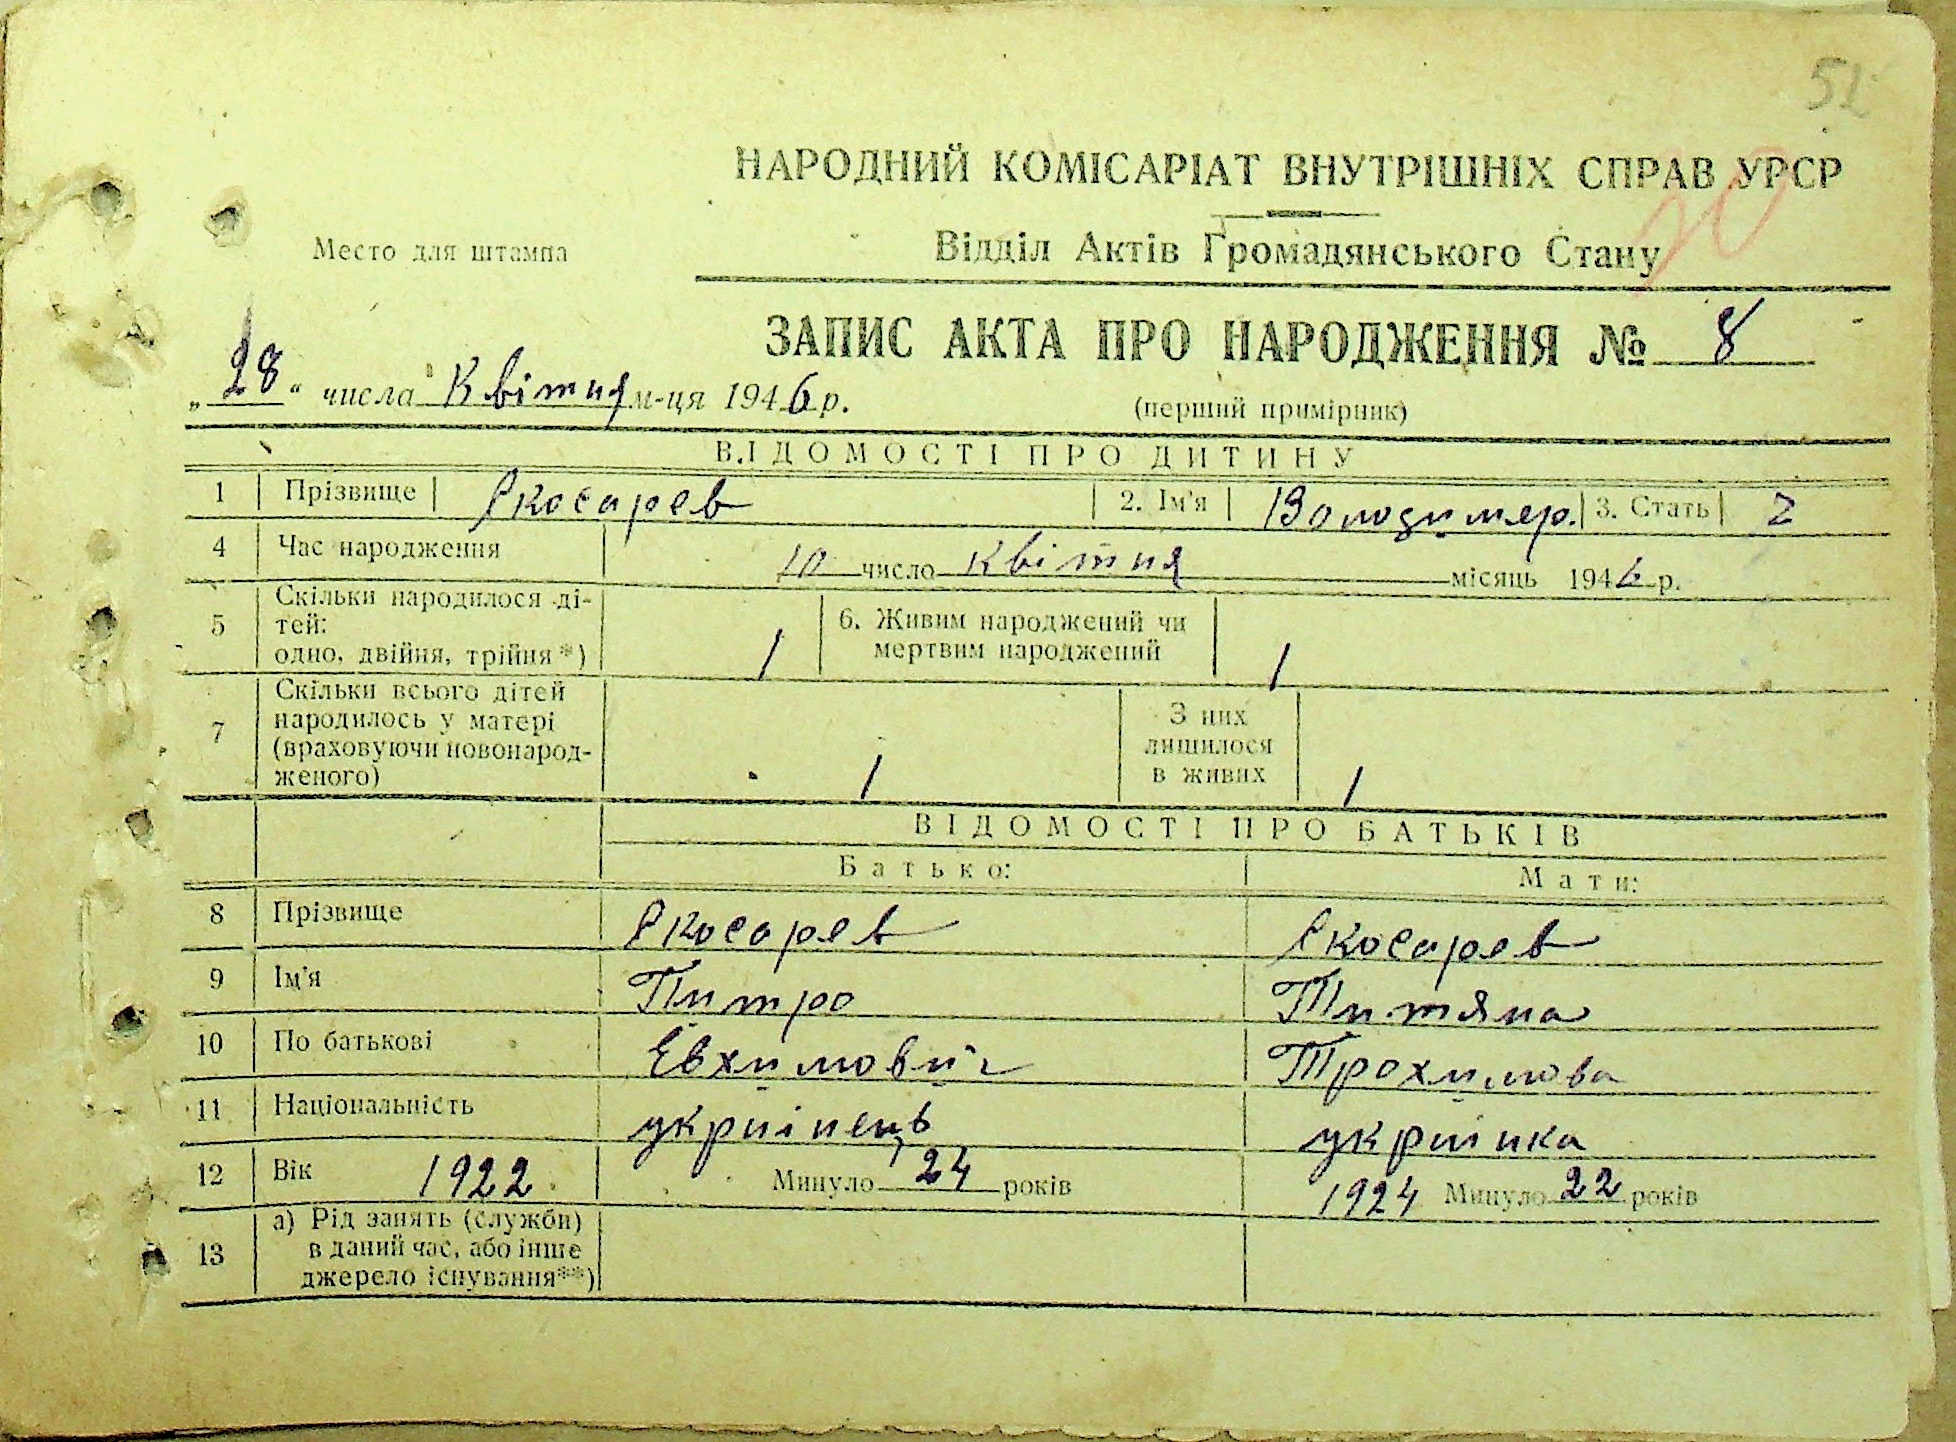 51
НАРОДНИЙ КОМІСАРІАТ ВНУТРІШНІХ СПРАВ УРСР
20
Место для штампа
Відділ Актів Громадянського Стану
ЗАПИС АКТА ПРО НАРОДЖЕННЯ № 8
„28“ числа Квітня м-ця 1946 р.
(перший примірник)
ВІДОМОСТІ ПРО ДИТИНУ
1 Прізвище Скосарев 2. Ім'я Володимер. 3. Стать
4 Час народження 10 число Квітня місяць 1946 р.
5 Скільки народилося ді-
тей:
одно, двійня, трійня*) 1
6. Живим народжений чи
мертвим народжений 1
7 Скільки всього дітей
народилось у матері
(враховуючи новонарод-
женого) 1
З них
лишилося
в живих 1
ВІДОМОСТІ ПРО БАТЬКІВ
Батько: Мати:
8 Прізвище Скосарев Скосарев
9 Ім'я Питро Титяна
10 По батькові Евхимович Трохимова
11 Національність украінець украінка
12 Вік 1922 Минуло 24 років 1924 Минуло 22 років
13 а) Рід занять (служби)
в даний час, або інше
джерело існування**)